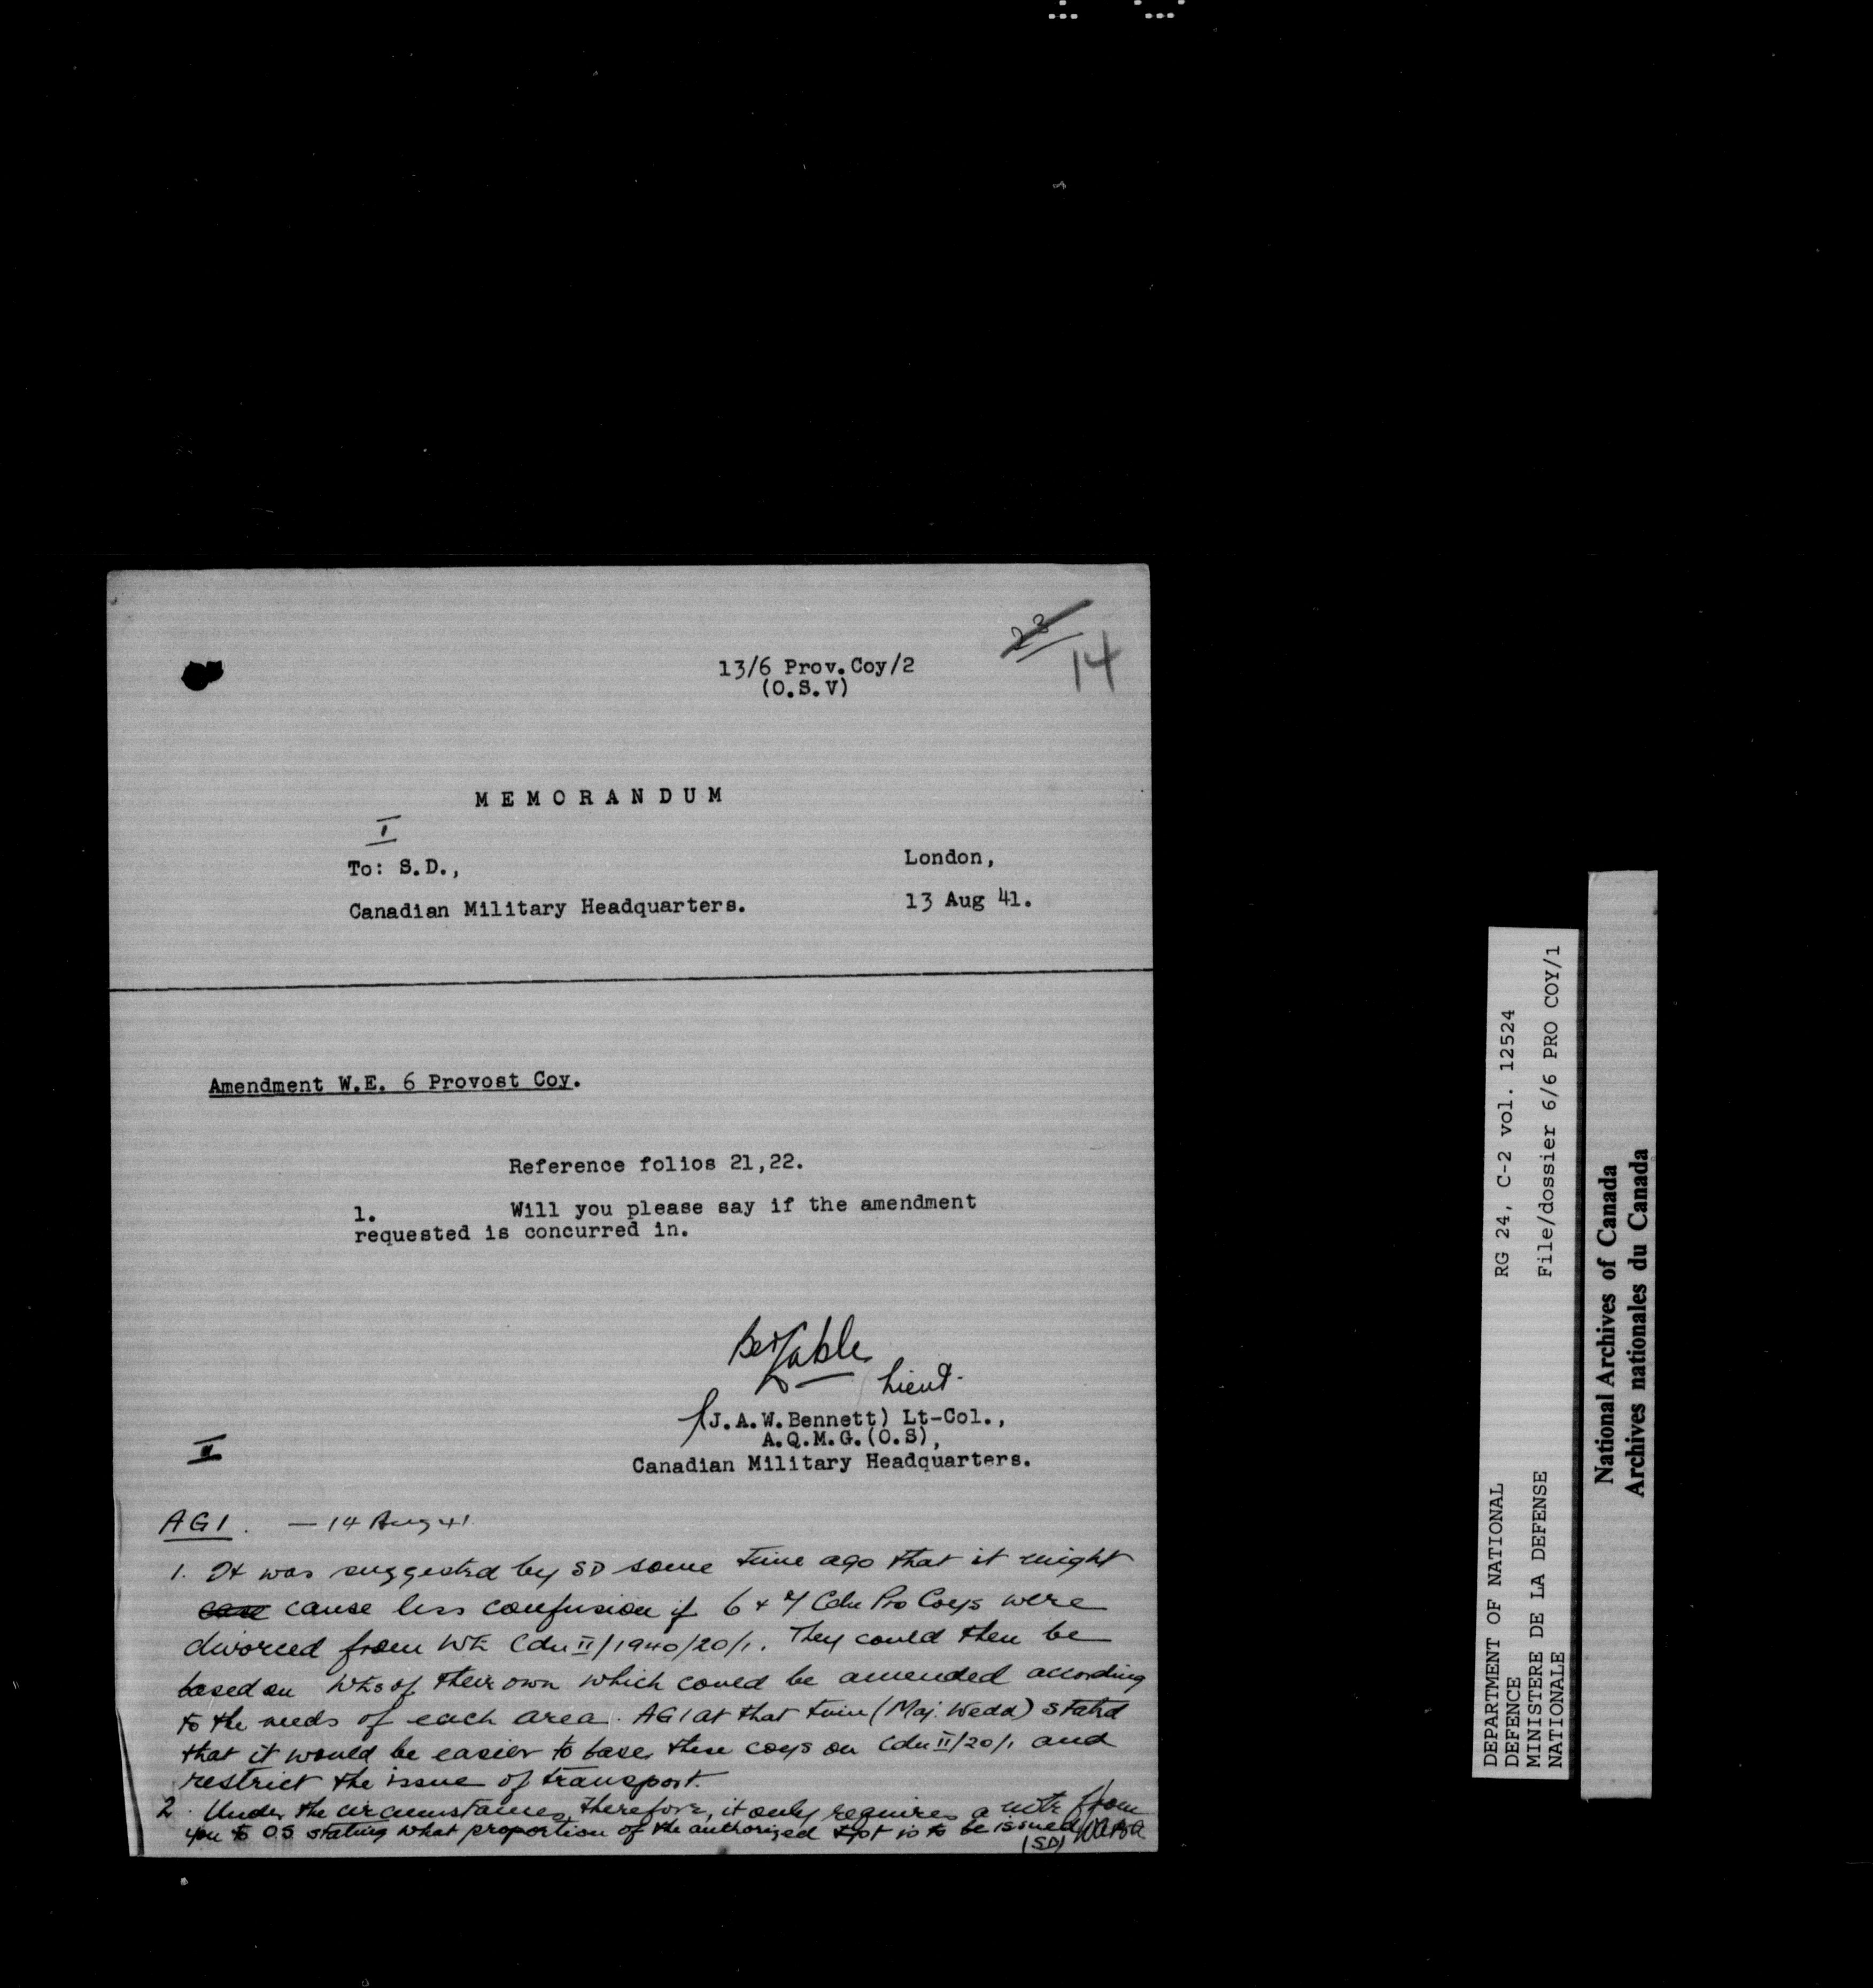 23
14
13/6 Prov.Coy/2
(O.S.V)
MEMORANDUM
I
To: S.D.,
London,
Canadian Military Headquarters.
13 Aug 41.
Amendment W.E. 6 Provost Coy.
Reference folios 21,22.
1. Will you please say if the amendment
requested is concurred in.
Lieut.
(J.A.W.Bennett) Lt-Col.,
A.Q.M.G.(O.S),
Canadian Military Headquarters.
II
AG1. — 14 Aug 41.
1. It was suggested by SD some time ago that it might
cause less confusion if 6 & 7 Cdn Pro Coys were
divorced from WE Cdn II/1940/20/1. They could then be
based on WEs of their own which could be amended according
to the needs of each area. AG1 at that time (Maj. Wedd) stated
that it would be easier to base these coys on Cdn II/20/1 and
restrict the issue of transport.
2. Under the circumstances, therefore, it only requires a note from
you to OS stating what proportion of the authorized tpt is to be issued
(SD)
DEPARTMENT OF NATIONAL
DEFENCE
MINISTERE DE LA DEFENSE
NATIONALE
RG 24, C-2 vol. 12524
File/dossier 6/6 PRO COY/1
National Archives of Canada
Archives nationales du Canada